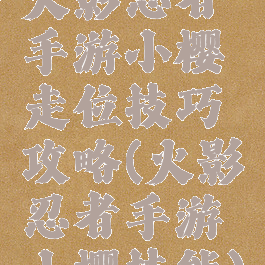 火影忍者
手游小樱
走位技巧
攻略(火影
忍者手游
小樱技能)